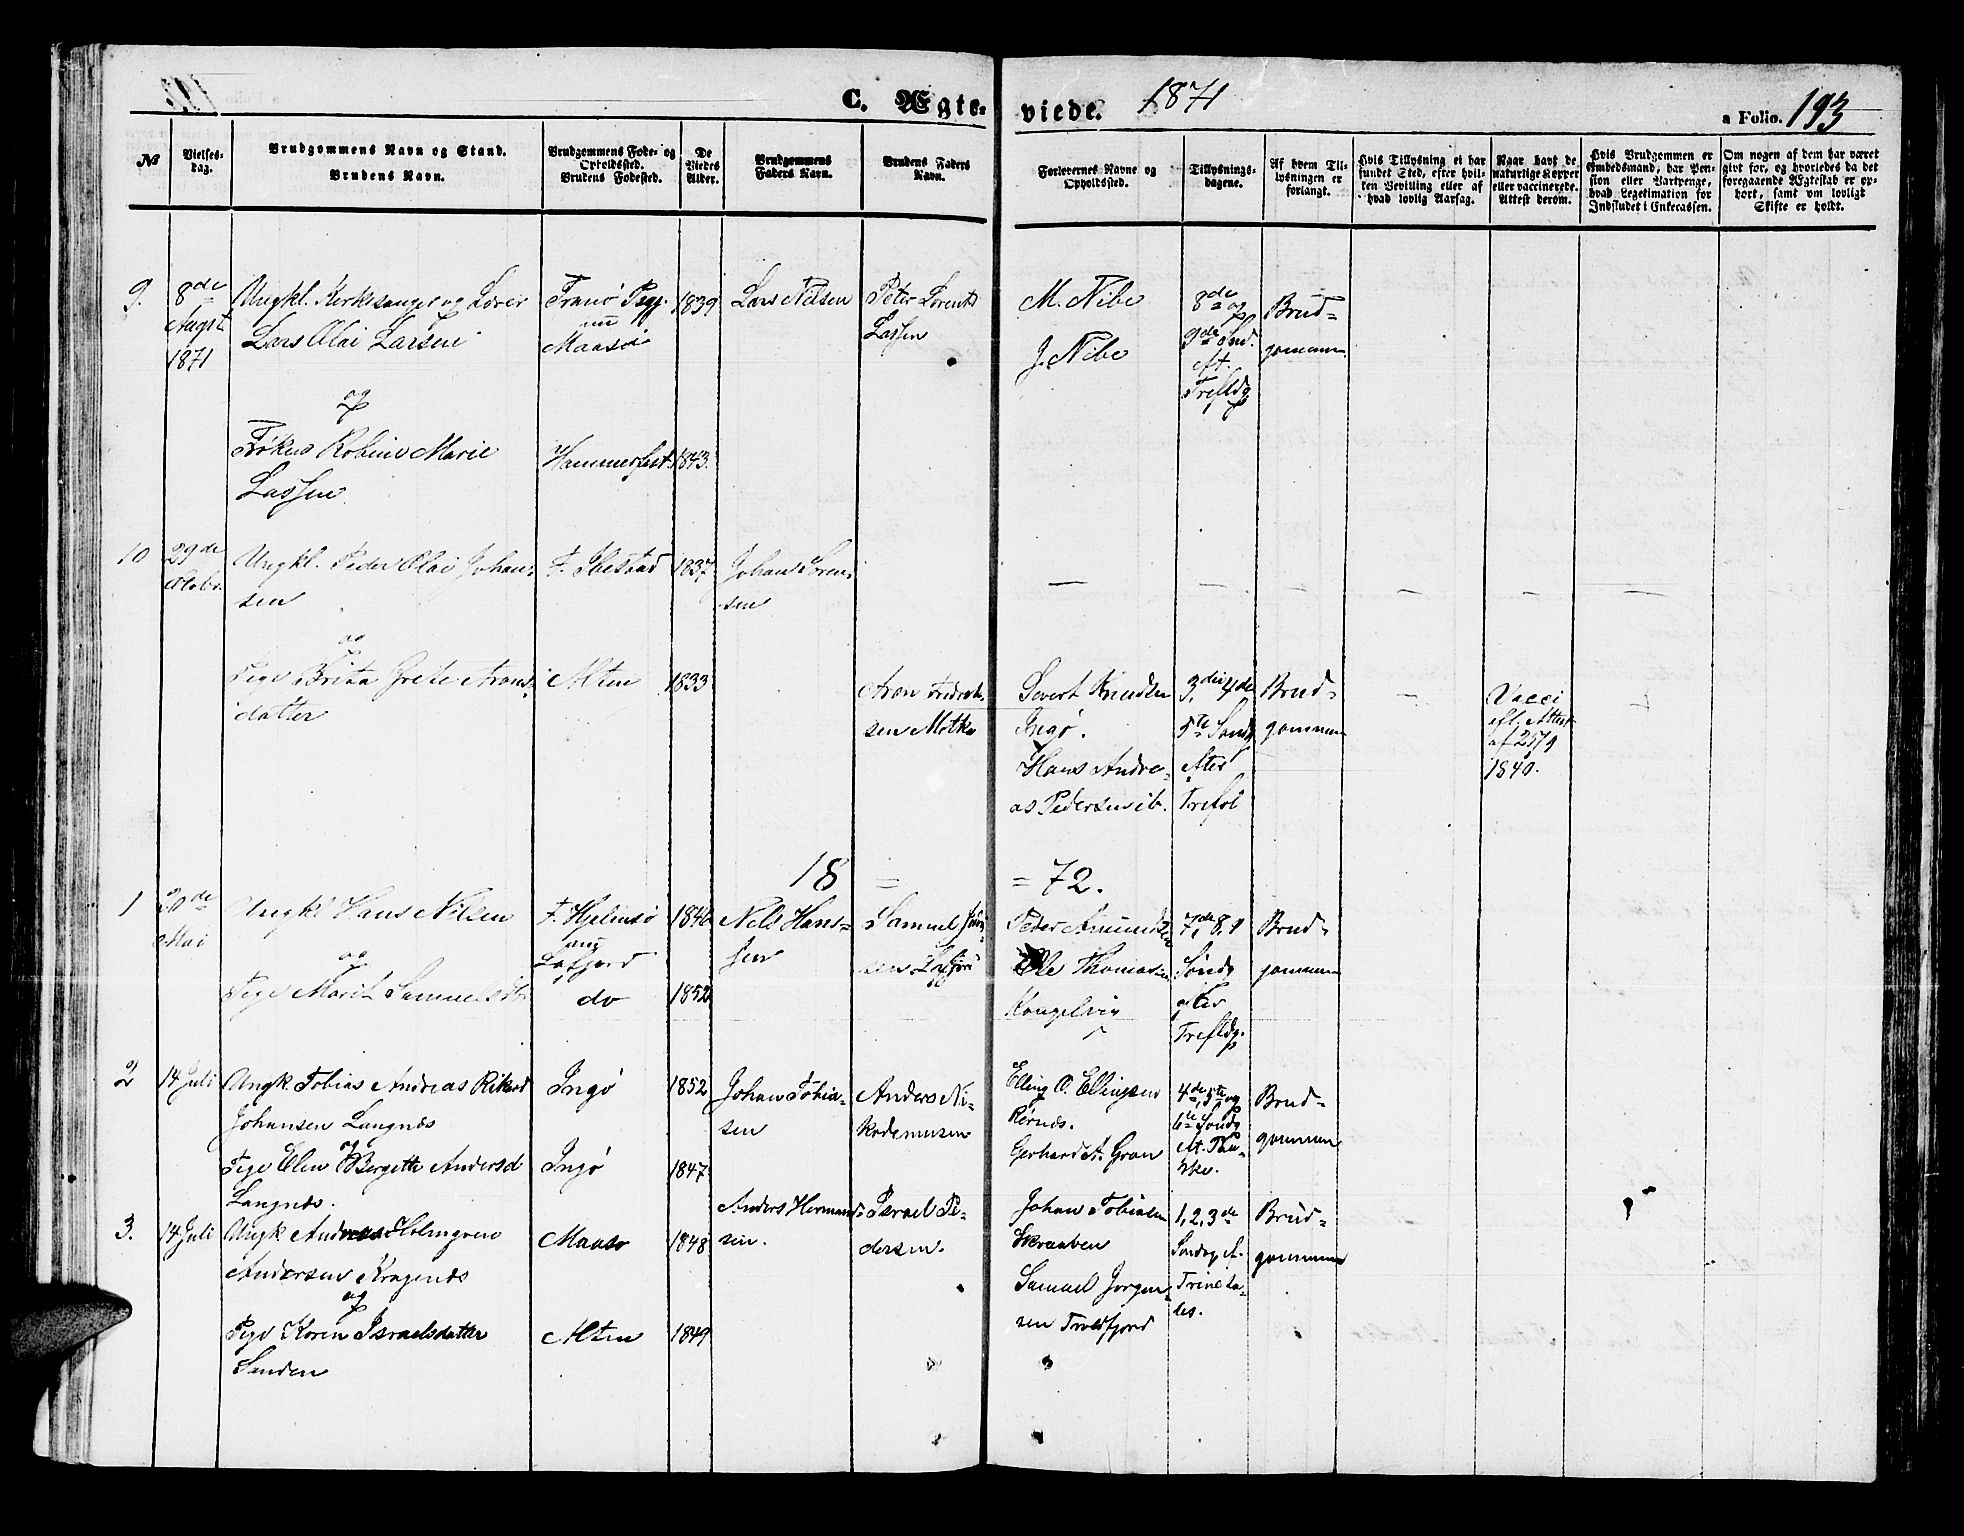 C. Ægteviede. 1871
a Folio. 193
№
Vielses-
dag.
Brudgommens Navn og Stand.
Brudens Navn.
Brudgommens Føde- og
Opholdssted.
Brudens Fødested.
De
Viedes
Alder.
Brudgommens
Faders Navn.
Brudens Faders
Navn.
Forlovernes Navne og
Opholdssted.
Tillysnings-
dagene.
Af hvem Til-
lysningen er
forlangt.
Hvis Tillysning ei har
fundet Sted, efter hvil-
ken Bevilling eller af
hvad lovlig Aarsag.
Naar havt de
naturlige Kopper
eller vaccinerede.
Attest derom.
Hvis Brudgommen er
Embedsmand, har Pen-
sion eller Vartpenge,
hvad Legetimation for
Indskudet i Enkecassen.
Om nogen af dem har været
gift før, og hvorledes da det
foregaaende Ægteskab er op-
hørt, samt om lovligt
Skifte er holdt.
9.
8de
Augst
1871
Ungkl. Kirkesanger og Lærer
Lars Olai Larsen
og
Frøken Robine Marie
Lassen
Tranø Pgj.
nu
Maasø
Hammerfest
1839
1843.
Lars Nilsen
Peter Lorents
Lassen
M. Nibe
J. Nibe
8de og
9de Snd.
eft.
Trefldg
Brud-
gommen
10
29de
Octobr.
Ungkl. Peder Olai Johan-
sen
og
Pige Brita Grete Arons-
datter
F. Ibestad
Alten
1837
1833
Johan Soren-
sen
Aron Fredrik-
sen Mathis
Sivert Knudsen
Ingø.
Hans Andre-
as Pedersen ib.
3die, 4de
5te Sondg
efter
Trefol
Brud-
gommen
Vacci
eft. Attest
af 25/9
1840.
18 = = 72.
1
20de
Mai
Ungkl Hans Nilsen
og
Pige Marit Samuelsdtr
F. Hjelmsø
og
Lafjord
do
1846
1852
Nils Han-
sen
Samuel
sen Lafjord
Peder Amundsen
Ole Thomassen
Kongelvig
7de, 8, 9
Søndg
efter
Trefldg.
Brud-
gommen
2
14 Juli
Ungk. Tobias Andreas Rikard
Johansen Langnæs
og
Pige Elen Bergette Andersd
Langnæs.
Ingø
Ingø
1852
1847
Johan Tobia-
sen
Anders Ni-
kodemusen
Elling O. Ellingsen
Rørnæs.
Gerhard A. Gran
4de, 5te og
6te Søndg
eft. Paa-
ske.
Brud-
gommen
3.
14 Juli
Ungk Andreas Holmgren
Andersen Kragenæs
og
Pige Karen Israelsdatter
Sanden
Maasø
Alten
1848
1849
Anders Herman-
sen.
Israel Pe-
dersen.
Johan Tobiasen
Skraaben
Samuel Jørgen-
sen Troldfjord
1, 2, 3de
Søndag ef.
Trinita-
tes.
Brud-
gommen